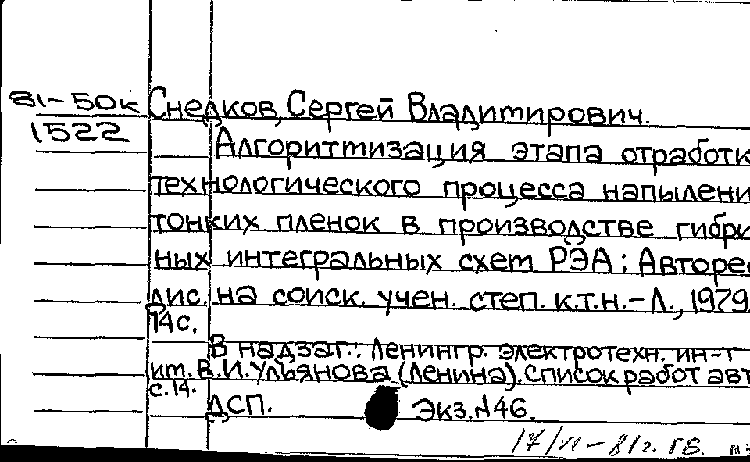 81-50к Снедков, Сергей Владимирович.
1522 Алгоритмизация этапа отработк
технологического процесса напылени
тонких пленок в производстве гибри
ных интегральных схем РЭА: Авторе
дис. на соиск. учен. степ. к.т.н.-Л., 1979
14с.
В надзаг.: Ленингр. электротехн. ин-т
им. В.И.Ульянова (Ленина). Список работ авт
с.14.
ДСП. Экз.№46.